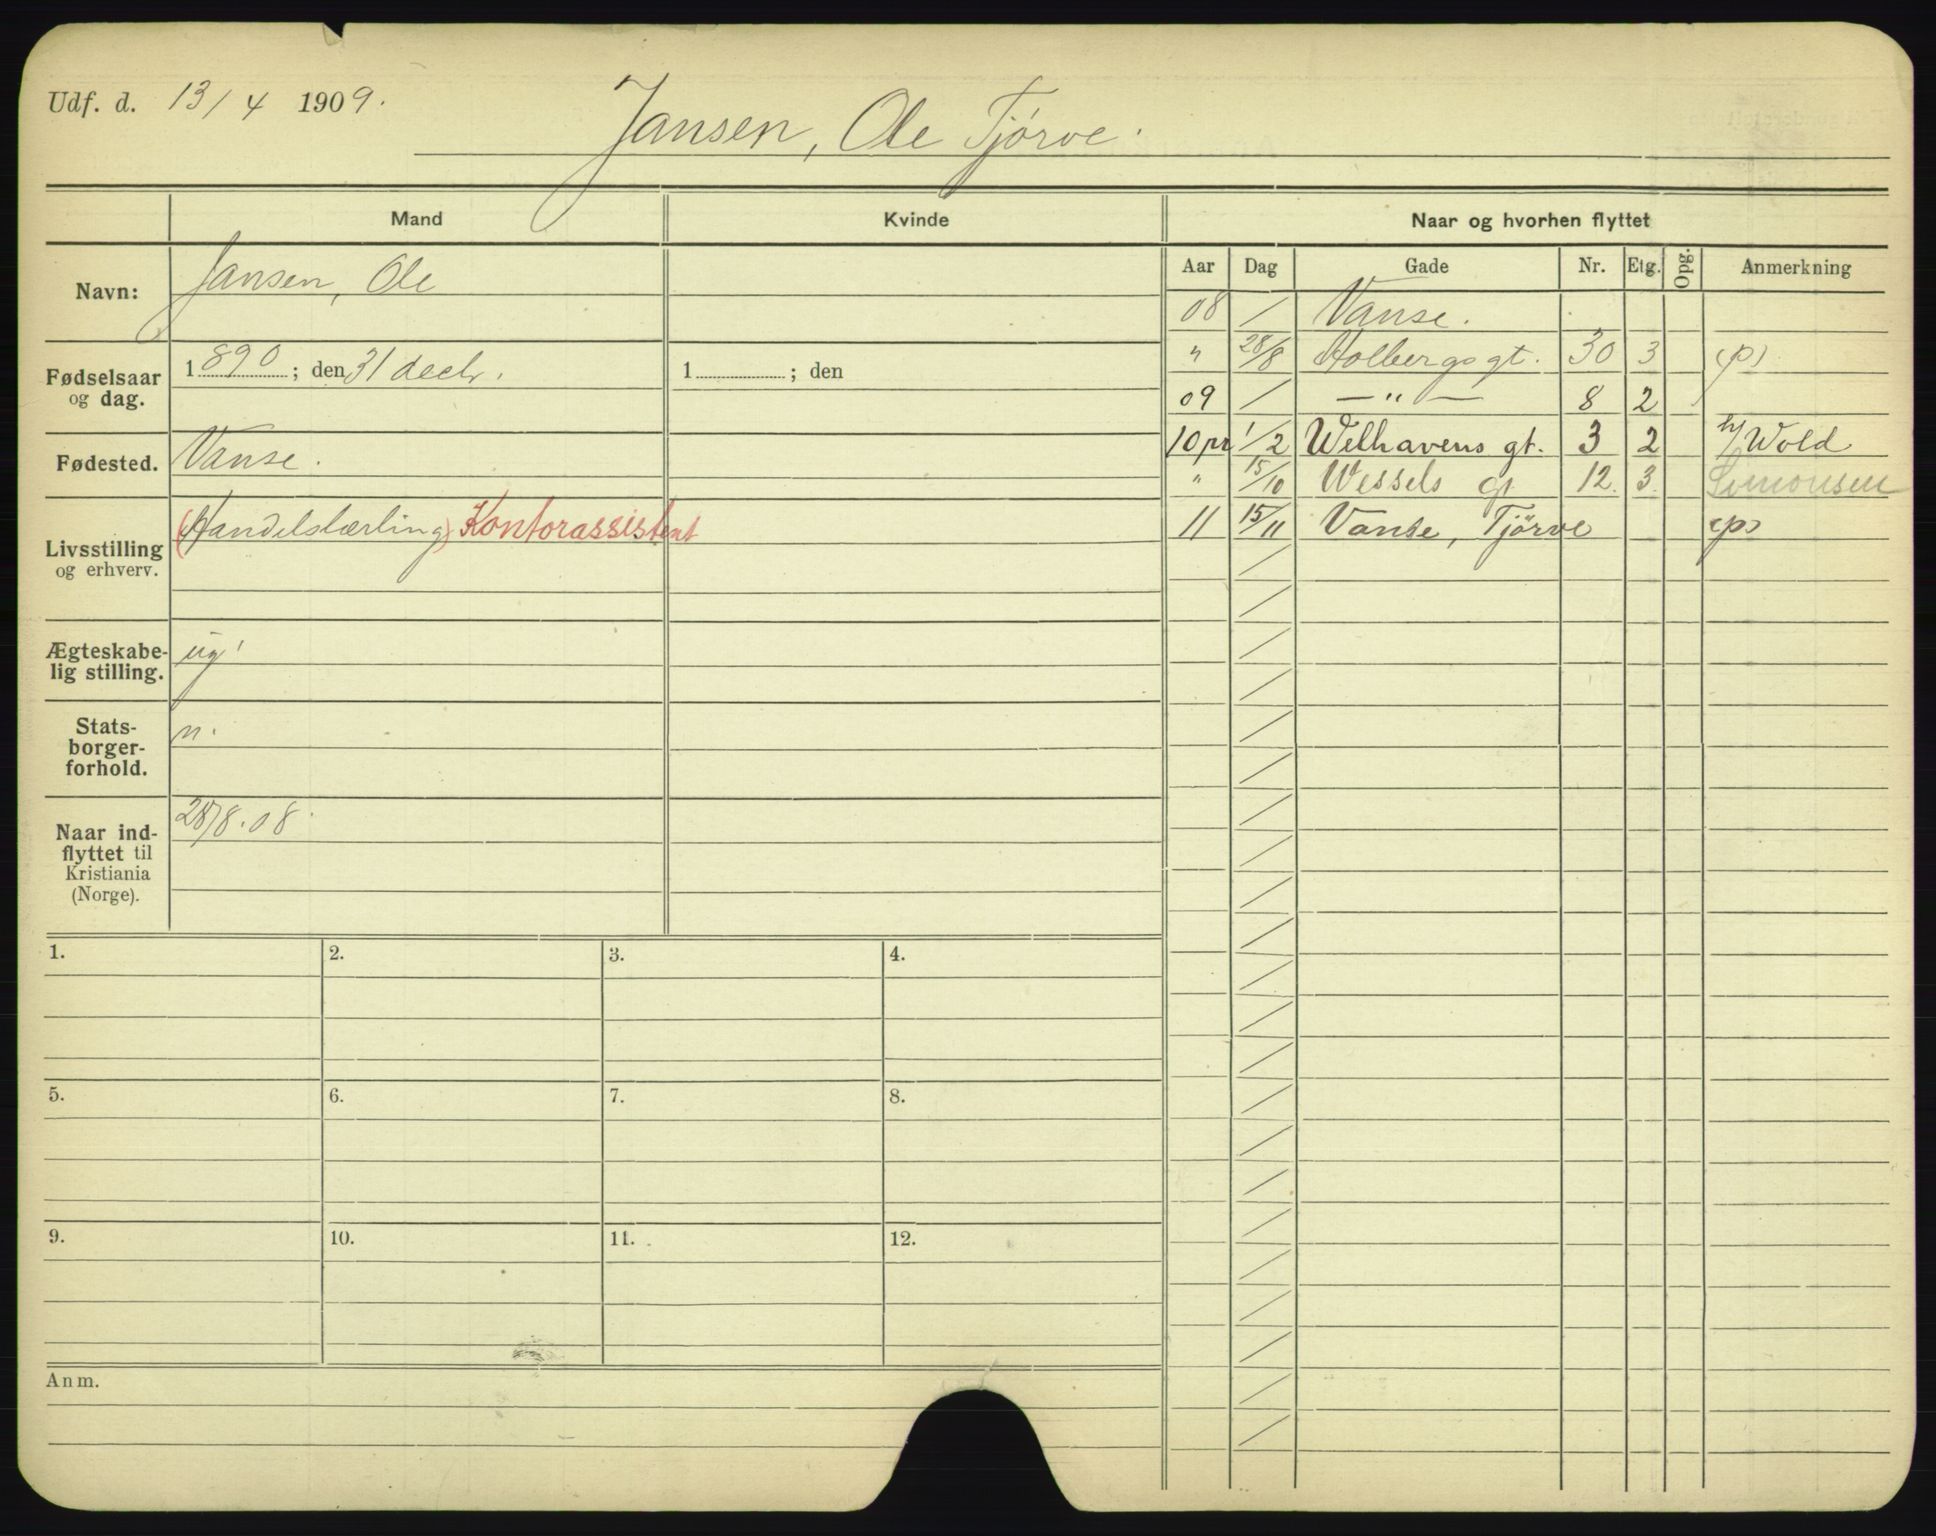 Udf. d. 13/4 1909.
Jansen, Ole Tjörve.
Mand Kvinde Naar og hvorhen flyttet
Aar Dag Gade Nr. Etg. Opg. Anmerkning
Navn: Jansen, Ole
Fødselsaar og dag. 1890; den 31 decbr. 1 ; den
Fødested. Vanse.
Livsstilling og erhverv. (Handelslærling) Kontorassistent
Ægteskabe-
lig stilling. ug
Stats-
borger-
forhold. n.
Naar ind-
flyttet til
Kristiania
(Norge). 28/8.08.
08 / Vanse.
" 28/8 Holbergs gt. 30 3 (p)
09 / — " — 8 2
10 pr 1/2 Welhavens gt. 3 2 h/ Wold
" 15/10 Wessels gt 12. 3. Simonsen
11 15/11 Vanse, Tjörve (p)
1. 2. 3. 4.
5. 6. 7. 8.
9. 10. 11. 12.
Anm.